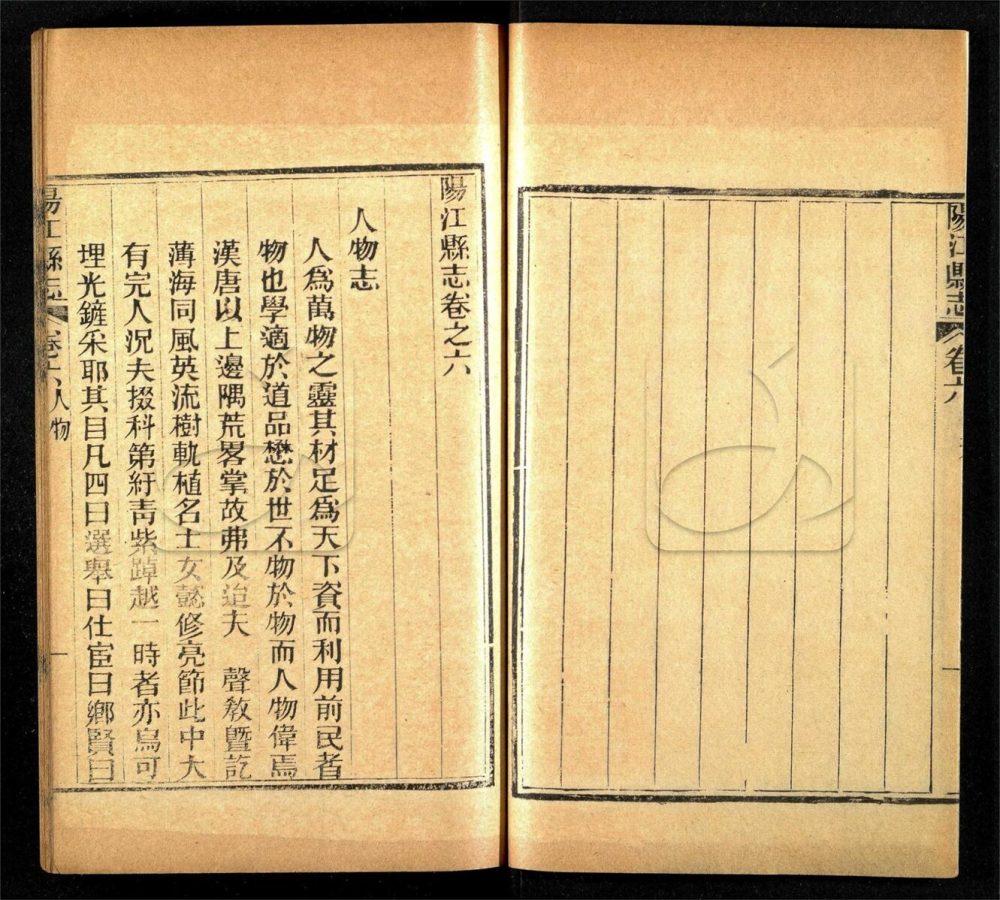 陽江縣志 卷六
陽江縣志卷之六
人物志
人爲萬物之靈其材足爲天下資而利用前民者
物也學適於道品懋於世不物於物而人物偉焉
漢唐以上邊隅荒畧掌故弗及迨夫 聲敎曁訖
薄海同風英流樹軌植名士女懿修亮節此中大
有完人況夫掇科第紆靑紫踔越一時者亦烏可
埋光鏟采耶其目凡四曰選舉曰仕宦曰鄕賢曰
陽江縣志 卷六 人物 一